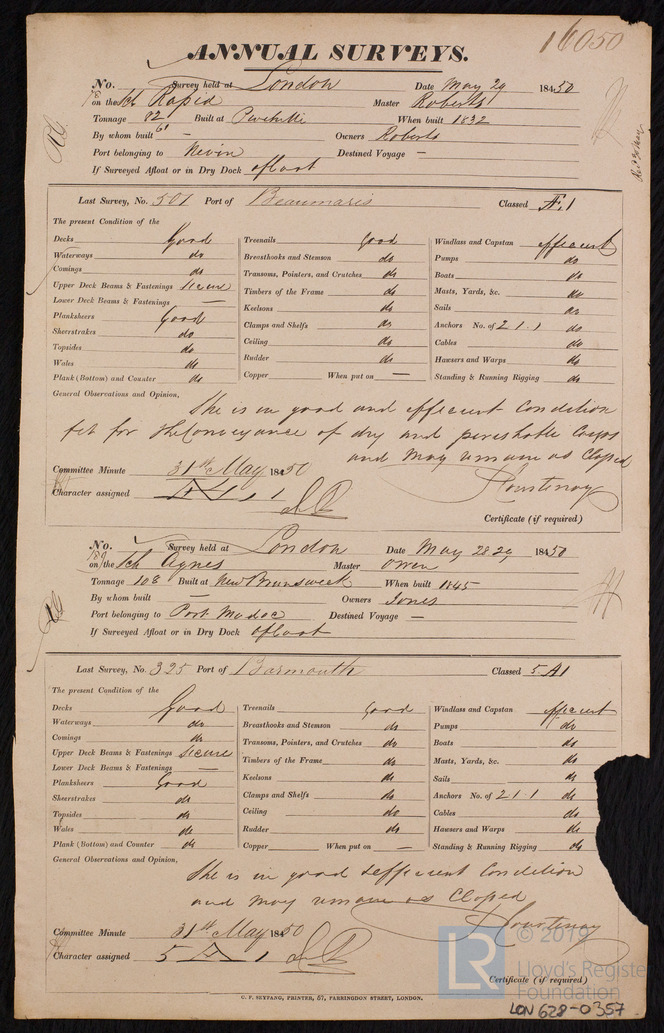 16050
ANNUAL SURVEYS.
No. Survey held at London Date May 29 1850
on the Sch Rapid Master Roberts
Tonnage 82 Built at Pwllheli When built 1832
61
By whom built — Owners Roberts
Port belonging to Nevin Destined Voyage —
If Surveyed Afloat or in Dry Dock afloat
Last Survey, No. 501 Port of Beaumaris Classed Æ.1
The present Condition of the
Decks Good Treenails Good Windlass and Capstan efficient
Waterways do Breasthooks and Stemson do Pumps do
Comings do Transoms, Pointers, and Crutches do Boats do
Upper Deck Beams & Fastenings Secure Timbers of the Frame do Masts, Yards, &c. do
Lower Deck Beams & Fastenings — Keelsons do Sails do
Planksheers Good Clamps and Shelfs do Anchors No. of 2 1. 1 do
Sheerstrakes do Ceiling do Cables do
Topsides do Rudder do Hawsers and Warps do
Wales do Copper When put on — Standing & Running Rigging do
Plank (Bottom) and Counter do
General Observations and Opinion,
She is in good and efficient Condition
fit for the Conveyance of dry and perishable Cargos
and may remain as Classed
Committee Minute 31st May 1850
Courtenay
Character assigned Æ 1. 1
Certificate (if required)
No. Survey held at London Date May 28 29 1850
on the Sch Agnes Master Owen
Tonnage 108 Built at New Brunswick When built 1845
By whom built — Owners Jones
Port belonging to Port Madoc Destined Voyage —
If Surveyed Afloat or in Dry Dock afloat
Last Survey, No. 325 Port of Yarmouth Classed 5 A1
The present Condition of the
Decks Good Treenails Good Windlass and Capstan efficient
Waterways do Breasthooks and Stemson do Pumps do
Comings do Transoms, Pointers, and Crutches do Boats do
Upper Deck Beams & Fastenings Secure Timbers of the Frame do Masts, Yards, &c. do
Lower Deck Beams & Fastenings — Keelsons do Sails do
Planksheers Good Clamps and Shelfs do Anchors No. of 2 1 1 do
Sheerstrakes do Ceiling do Cables do
Topsides do Rudder do Hawsers and Warps do
Wales do Copper When put on — Standing & Running Rigging do
Plank (Bottom) and Counter do
General Observations and Opinion,
She is in good & efficient Condition
and may remain as Classed
Committee Minute 31st May 1850
Courtenay
Character assigned 5 A 1
Certificate (if required)
C. F. SEYFANG, PRINTER, 57, FARRINGDON STREET, LONDON.
LR © 2019
Lloyd's Register
Foundation
LON 628-0357